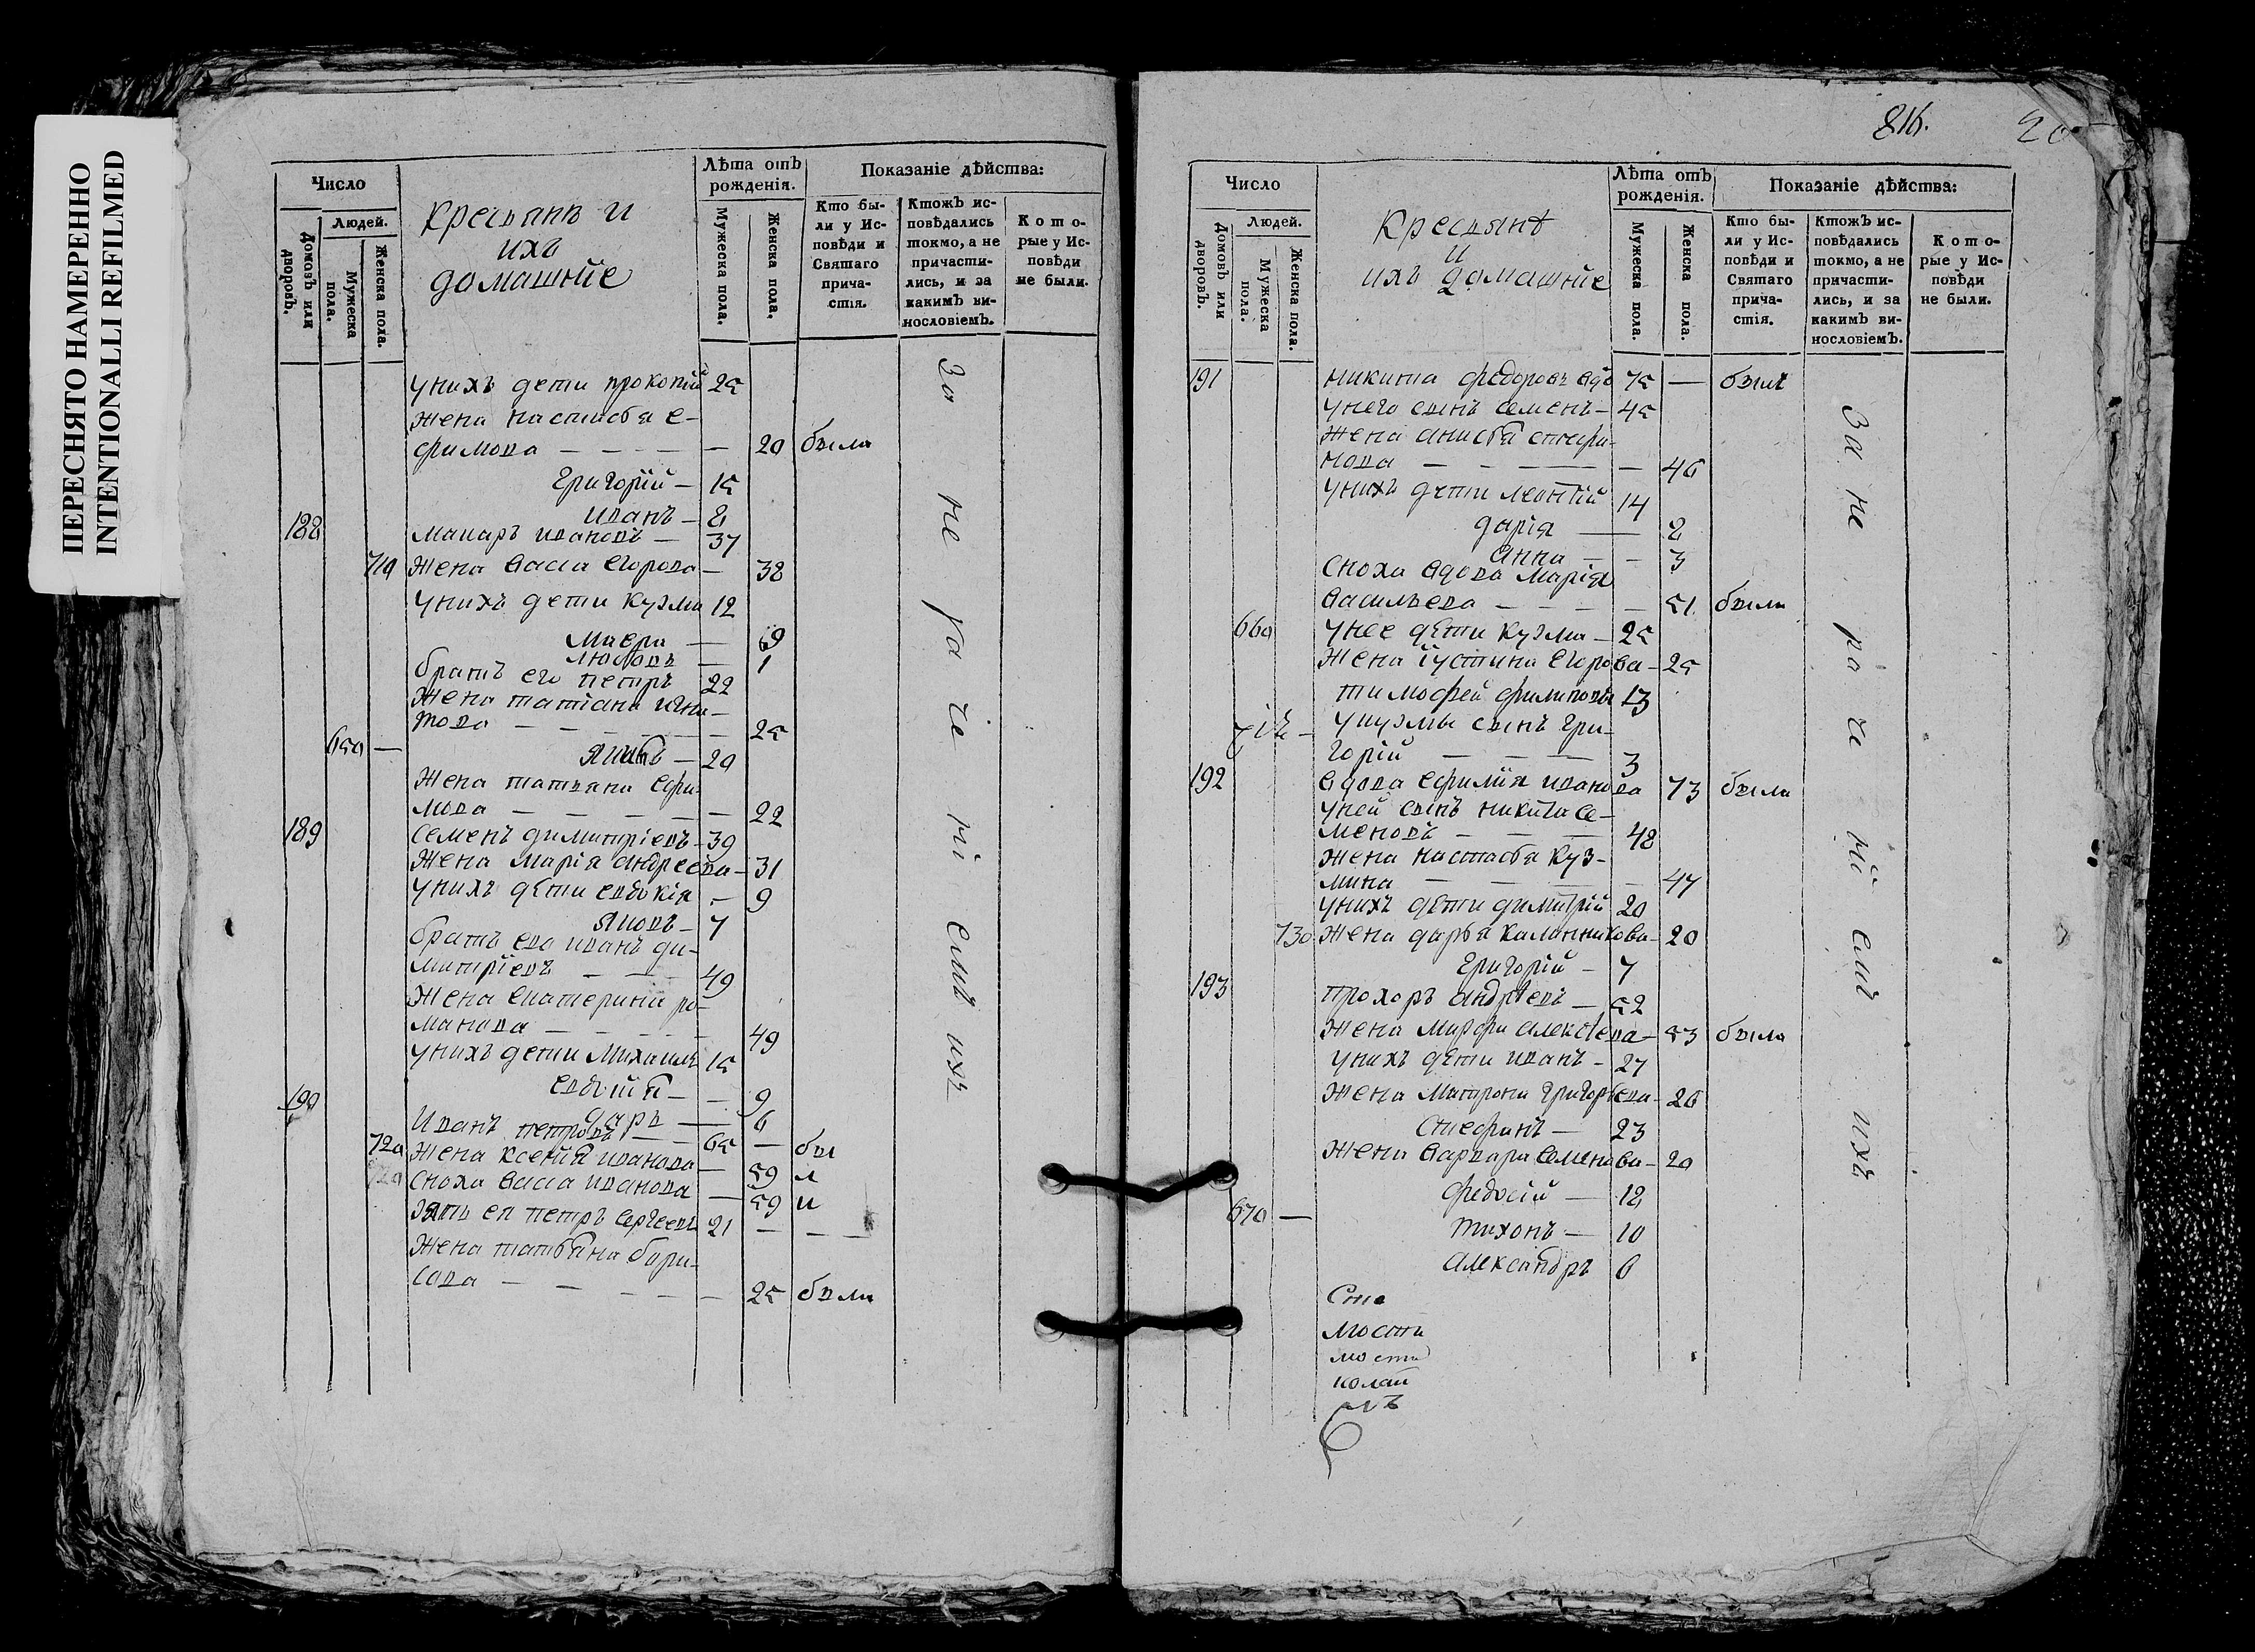 ПЕРЕСНЯТО НАМЕРЕННО
INTENTIONALLI REFILMED
Число
Людей.
Домовъ или дворовъ.
Мужеска пола.
Женска пола.
крестьянѣ и
ихъ
домашніе
Лѣта отъ рожденія.
Мужеска пола.
Женска пола.
Показаніе дѣйства:
Кто бы-
ли у Ис-
повѣди и
Святаго
прича-
стія.
Ктожъ ис-
повѣдались
токмо, а не
причасти-
лись, и за
какимъ ви-
нословіемъ.
Кото-
рые у Ис-
повѣди
не были.
унихъ дети прокопій 25
жена настасья е-
фимова — 20 были
Григорій — 15
иванъ — 8
188 макаръ ивановъ — 37
719 жена васса егорова — 38
унихъ дети кузма 12
мавра — 9
любовь — 1
братъ его петръ 22
жена татіана игна-
това — 25
650 — яковъ — 20
жена татьяна ефи-
мова — 22
189 семенъ димитріевъ — 39
жена марія андреева — 31
унихъ дѣти евдокія — 9
яковъ — 7
братъ его иванъ ди-
митріевъ — 49
жена екатерина ро-
манова — 49
унихъ дети михаилъ 15
— 9
дарь — 6
190 Иванъ петровъ — 65 — бы
720 жена ксенія иванова — 59 л
сноха васса иванова — 59 и
зять ея петръ сергеевъ 21 —
жена татьяна бори-
сова — 25 были
За не раче ні емъ ихъ
816.
20
Число
Людей.
Домовъ или дворовъ.
Мужеска пола.
Женска пола.
крестьянѣ
и
ихъ домашніе
Лѣта отъ рожденія.
Мужеска пола.
Женска пола.
Показаніе дѣйства:
Кто бы-
ли у Ис-
повѣди и
Святаго
прича-
стія.
Ктожъ ис-
повѣдались
токмо, а не
причасти-
лись, и за
какимъ ви-
нословіемъ.
Кото-
рые у Ис-
повѣди
не были.
191 никита федоровъ вдо 75 — былъ
унего сынъ семенъ — 45
жена анисья стефа-
нова — 46
унихъ дети леонтій 14
дарія — 2
анна — 3
сноха вдова марія
васильева — 51 были
660 унее дѣти кузма — 25
жена іустина егорова — 25
тимофей филиповъ 13
укузмы сынъ гри-
горій — 3
192 вдова ефимія иванова 73 были
уней сынъ никита се-
меновъ — 48
жена настасья куз-
мина — 47
унихъ дѣти димитрій 20
730 жена дарья калинникова — 20
Григорій — 7
193 прохоръ андреевъ — 52
жена марфа алексеева — 53 были
унихъ дѣти иванъ — 27
жена матрона григорьева — 26
стефанъ — 23
жена варвара семенова — 20
федосій — 12
670 — тихонъ — 10
александръ 6
За не ра че ній емъ ихъ
мости
мости
колай